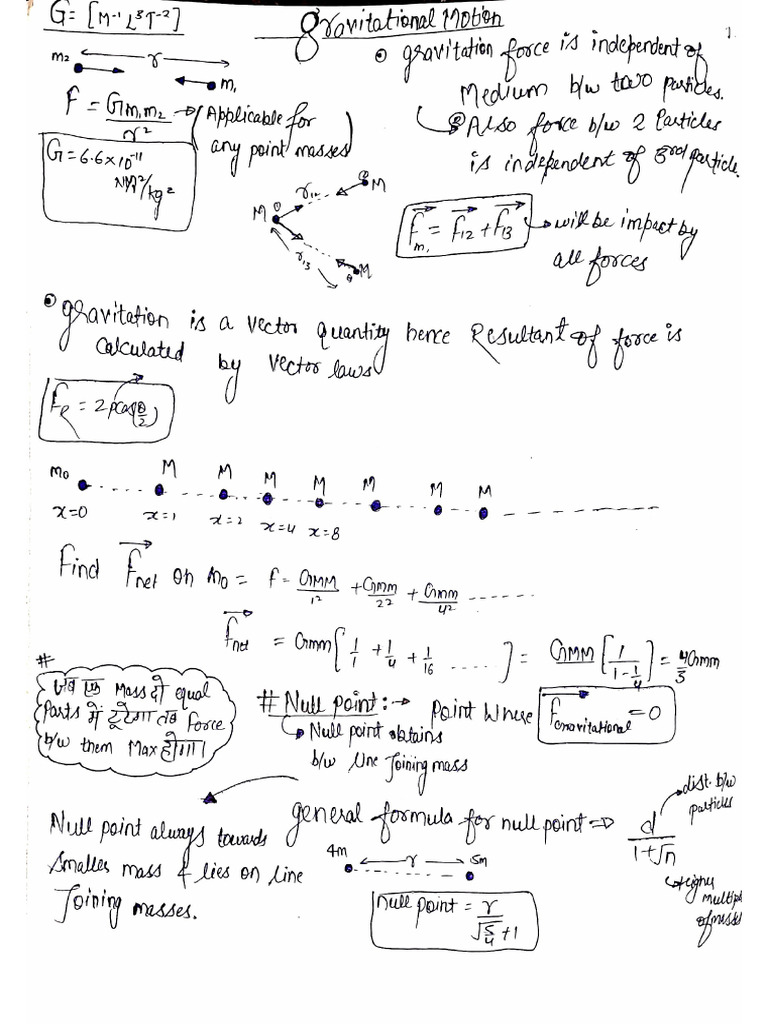 G = [M⁻¹ L³ T⁻²]
Gravitational Motion
1.
m₂ r m₁
F = Gm₁m₂/r² → (Applicable for any point masses)
G = 6.6×10⁻¹¹ NM²/kg²
gravitation force is independent of
Medium b/w two particles.
Also force b/w 2 Particles
is independent of 3rd particle.
M r₁₂ M
r₁₃ M
F m₁ = F₁₂ + F₁₃ → will be impact by
all forces
gravitation is a vector quantity hence Resultant of force is
calculated by vector laws
F_R = 2Pcos(θ/2)
m₀ M M M M M M M
x=0 x=1 x=2 x=4 x=8
Find F net on m₀ = F = GMM/1² + Gmm/2² + Gmm/4² ......
F net = Gmm[1/1 + 1/4 + 1/16 .....] = GMM[1/(1-1/4)] = 4/3 Gmm
#
जब एक Mass दो equal
Parts में टूटेगा तब Force
b/w them Max होगा।
# Null point :→ Point where F Gravitational = 0
Null point obtains
b/w line Joining mass
Null point always towards
Smaller mass & lies on line
Joining masses.
general formula for null point ⇒ d/(1+√n)
dist. b/w
particles
Higher
multiple
of masses
4m r 5m
null point = r/(√(5/4)+1)